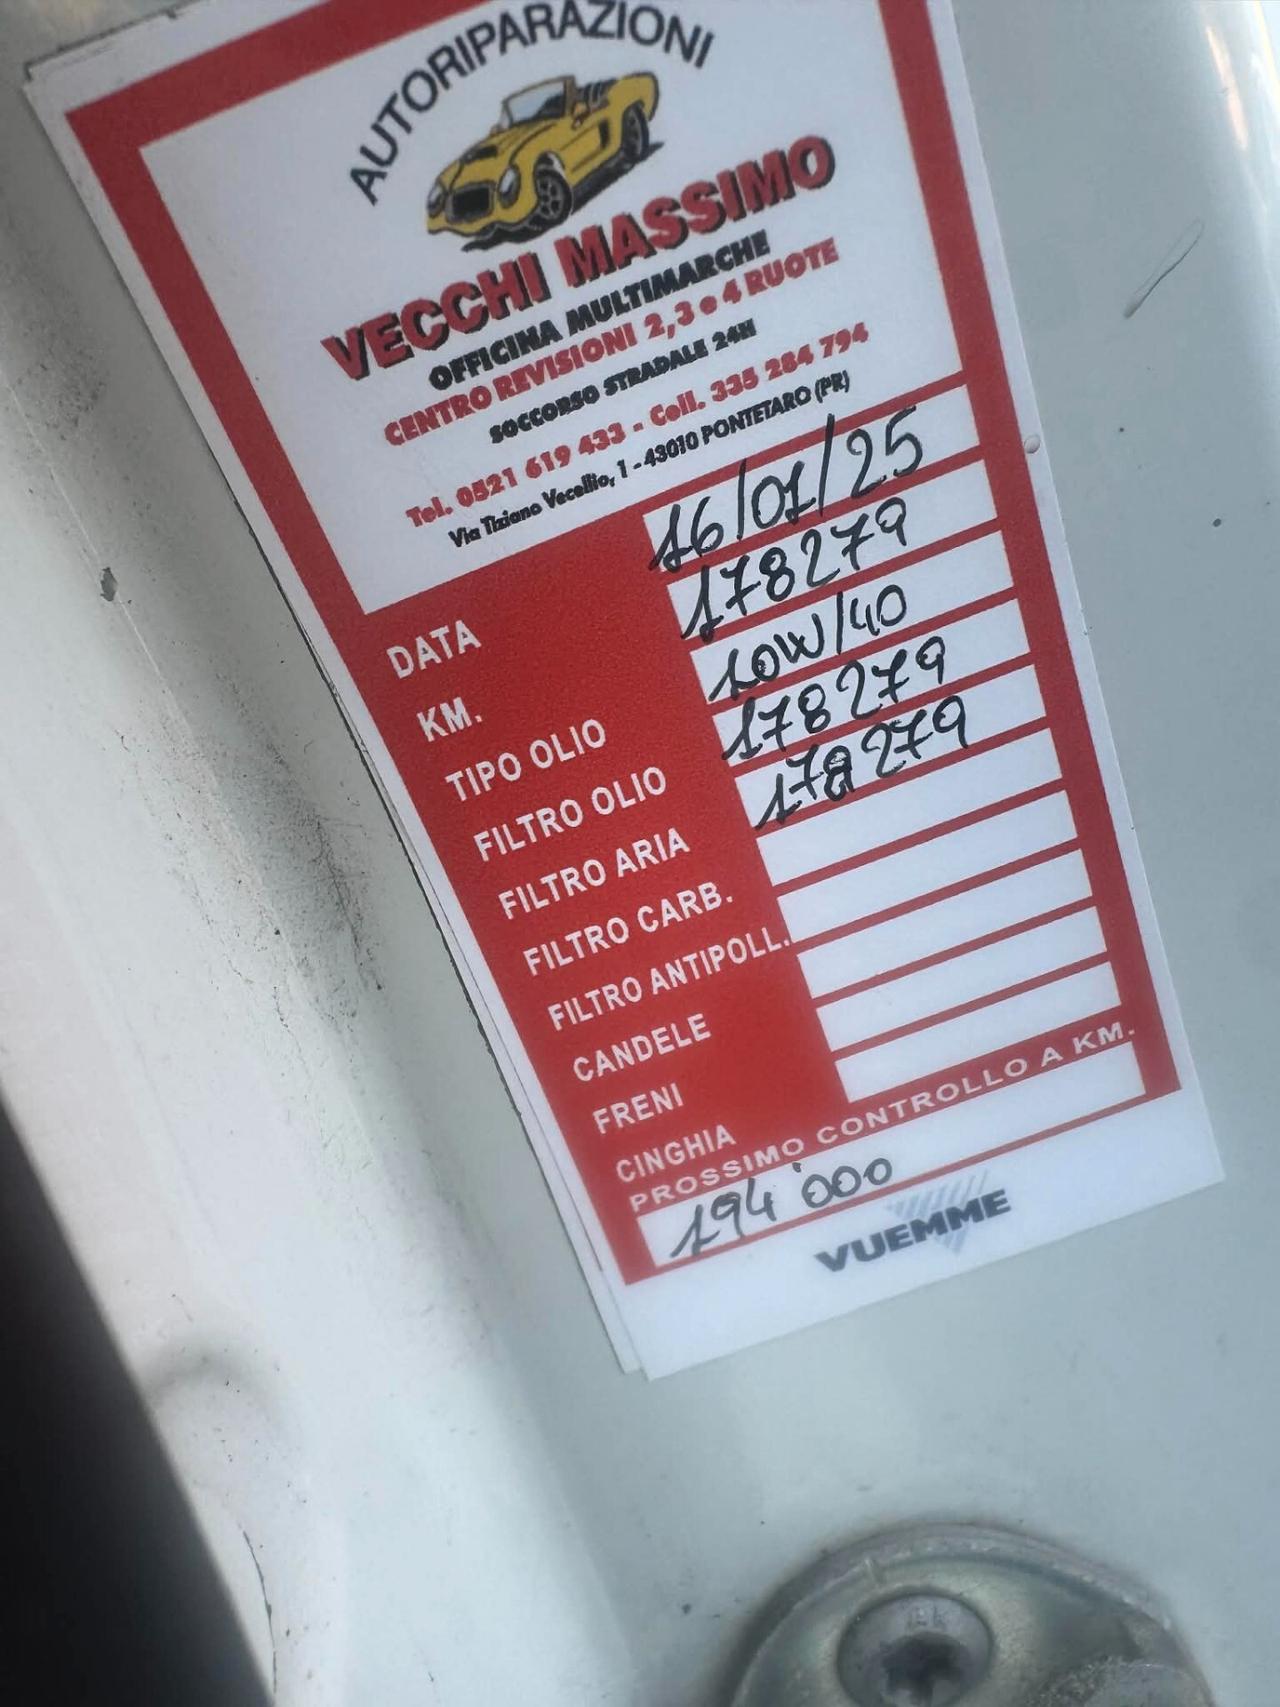 AUTORIPARAZIONI
VECCHI MASSIMO
OFFICINA MULTIMARCHE
CENTRO REVISIONI 2, 3 e 4 RUOTE
SOCCORSO STRADALE 24H
Tel. 0521 619 433 - Cell. 335 284 794
Via Tiziano Vecellio, 1 - 43010 PONTETARO (PR)
DATA 16/01/25
KM. 178279
TIPO OLIO 10W/40
FILTRO OLIO 178279
FILTRO ARIA 178279
FILTRO CARB.
FILTRO ANTIPOLL.
CANDELE
FRENI
CINGHIA
PROSSIMO CONTROLLO A KM.
194'000
VUEMME